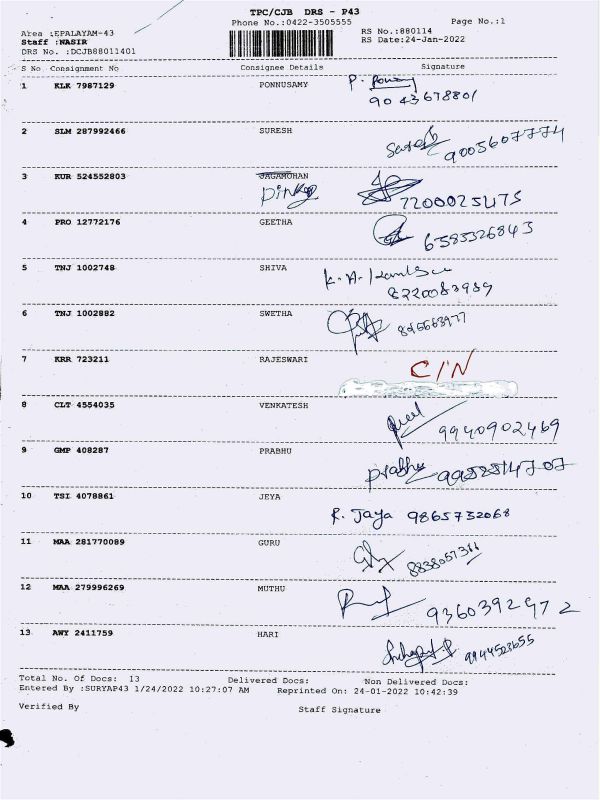 TPC/CJB DRS - P43
Phone No.:0422-3505555
Page No.:1
Area :EPALAYAM-43
RS No.:880114
Staff :NASIR
RS Date:24-Jan-2022
DRS No. :DCJB88011401
S No Consignment No Consignee Details Signature
1 KLK 7987129 PONNUSAMY P.
9043678801
2 SLM 287992466 SURESH
9005607774
3 KUR 524552803 JAGAMOHAN
7200025475
4 PRO 12772176 GEETHA
6385326843
5 TNJ 1002748 SHIVA K.A.
8220083989
6 TNJ 1002882 SWETHA
7 KRR 723211 RAJESWARI C/N
8 CLT 4554035 VENKATESH
9940902469
9 GMP 408287 PRABHU Prabhu
10 TSI 4078861 JEYA R. Jaya 9865732068
11 MAA 281770089 GURU
12 MAA 279996269 MUTHU
9360392972
13 AWY 2411759 HARI
Total No. Of Docs: 13 Delivered Docs: Non Delivered Docs:
Entered By :SURYAP43 1/24/2022 10:27:07 AM Reprinted On: 24-01-2022 10:42:39
Verified By Staff Signature